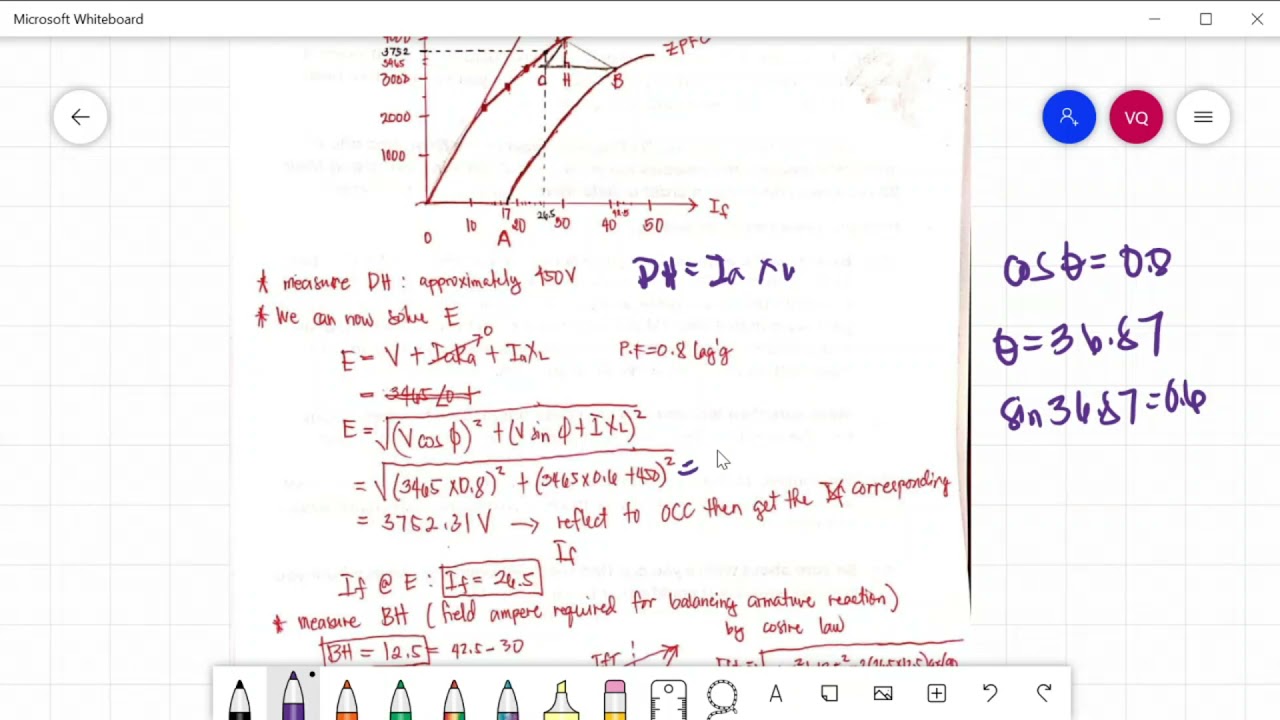 Microsoft Whiteboard
VQ
4000
3752
3465
3000
2000
1000
ZPFC
C H B
0 10 17 20 26.5 30 40 42.5 50 If
A
* measure DH : approximately 450V
DH = Ia XL
* We can now solve E
E = V + IaRa 0 + IaXL
P.F = 0.8 lag'g
= 3465 ∠0 +
E = √(V cos ϕ)² + (V sin ϕ + IXL)²
= √(3465 x 0.8)² + (3465 x 0.6 + 450)² =
= 3752.31 V → reflect to OCC then get the If corresponding
If
If @ E : If = 26.5
* measure BH (field ampere required for balancing armature reaction)
by cosine law
BH = 12.5 = 42.5 - 30
Ifr
cos θ = 0.8
θ = 36.87
sin 36.87 = 0.6
A